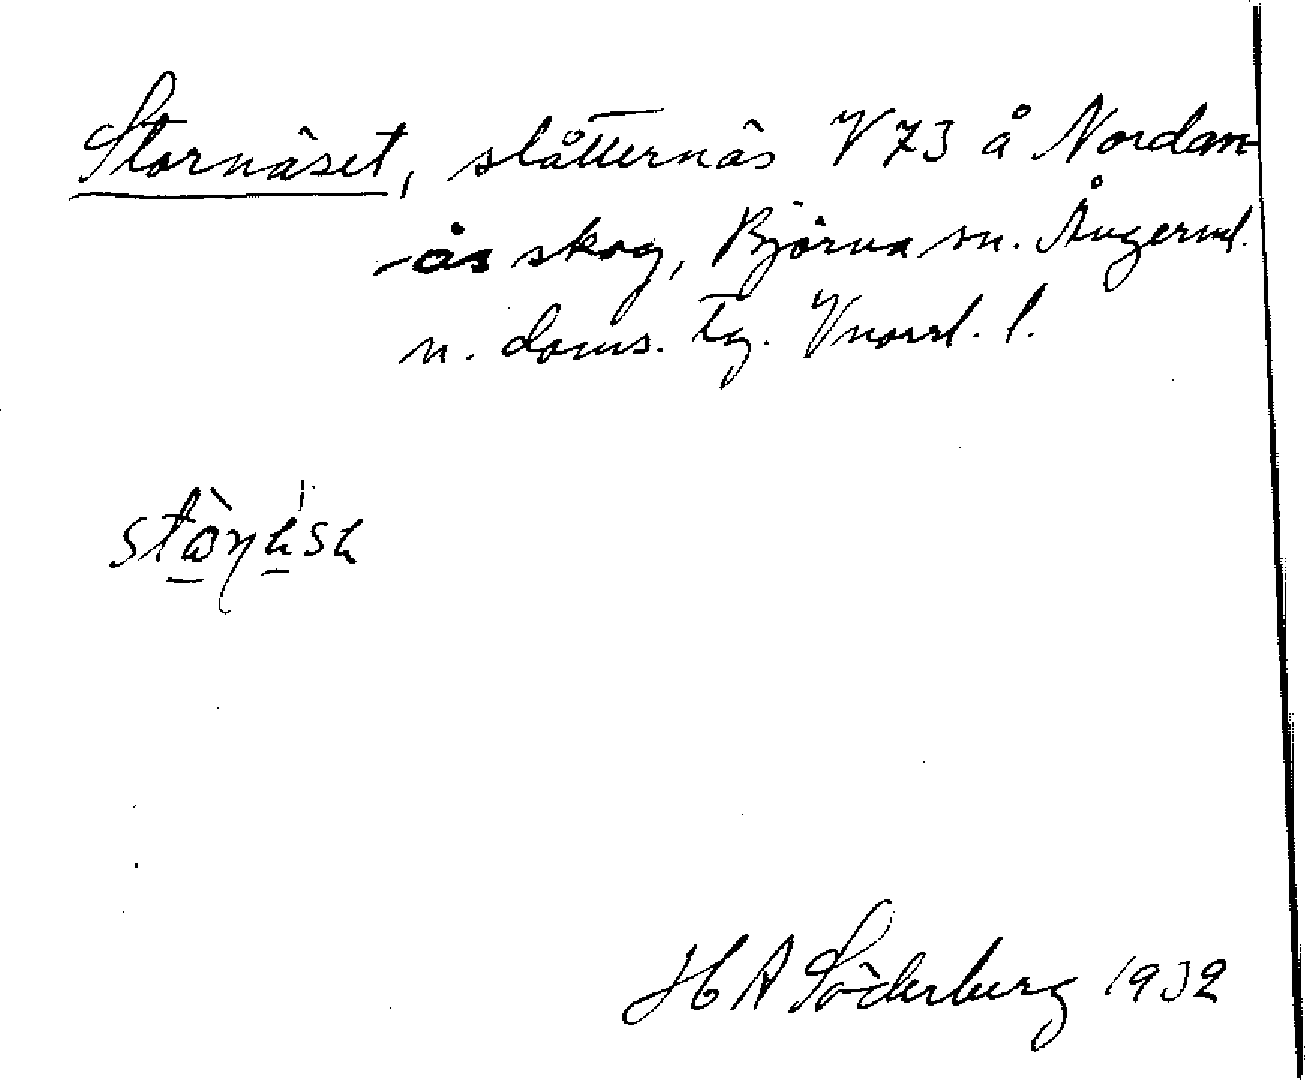 Stornäset, slåtternäs V 73 å Nordan-
-ås skog, Björna sn. Ångerml.
n. doms. tg. Vnorrl. l.
H A Söderberg 1932